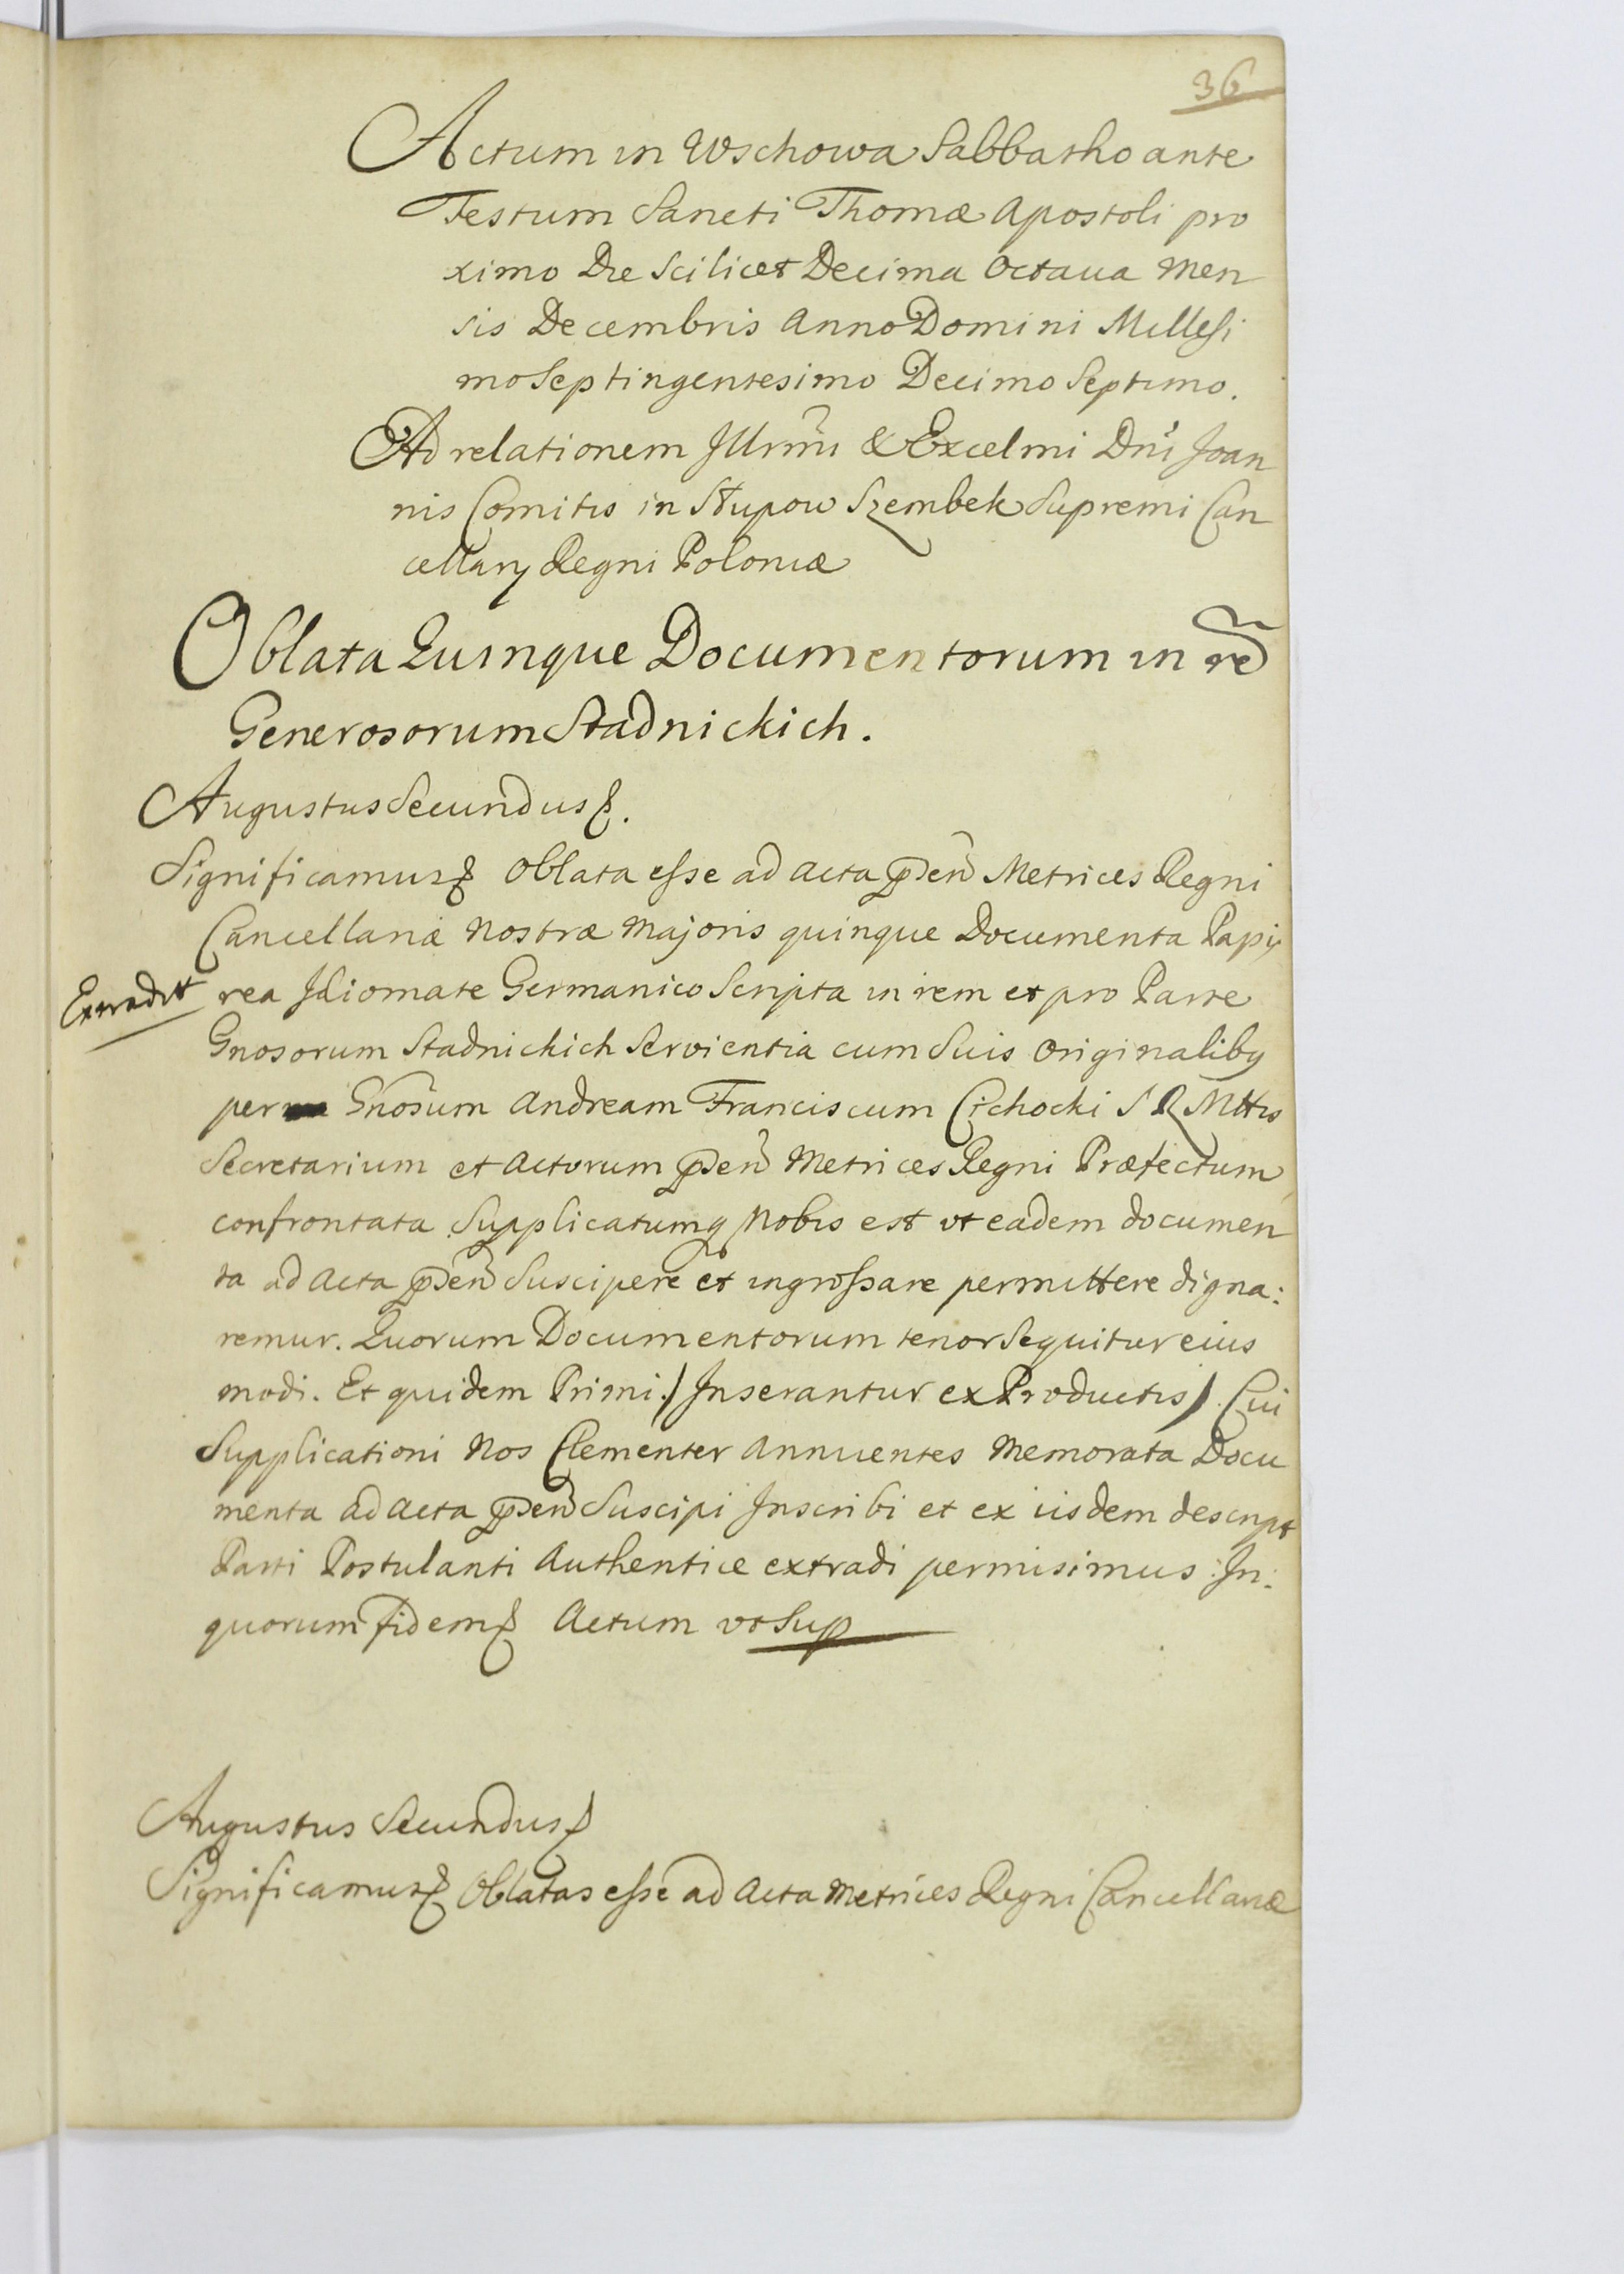 36
Actum in Wschowa Sabbatho ante
Festum Sancti Thomæ Apostoli pro
ximo Die Scilicet Decima Octaua Men
sis Decembris Anno Domini Millesi
mo Septingentesimo Decimo Septimo.
Ad relationem Illrmi & Excelmi Dni Joan
nis Comitis in Słupow Szembek Supremi Can
cellarij Regni Poloniæ
Oblata Quinque Documentorum in re
Generosorum Stadnickich.
Augustus Secundus &.
Significamus & Oblata esse ad Acta pden Metrices Regni
Cancellariæ Nostræ Majoris quinque Documenta Papi,
Extradit rea Idiomate Germanico Scripta in rem et pro Parte
Gnosorum Stadnickich Servientia cum Suis Originalibq
per Gnosum Andream Franciscum Cichocki S R Mttis
Secretarium et Actorum pden Metrices Regni Præfectum
confrontata Supplicatumq Nobis est vt eadem documen
ta ad Acta pden Suscipere et ingrossare permittere digna:
remur. Quorum Documentorum tenor Sequitur eius
modi. Et quidem Primi./ Inserantur ex Productis / Cui
Supplicationi Nos Clementer Annuentes Memorata Docu
menta ad Acta pden Suscipi Inscribi et ex iisdem descript
Parti Postulanti Authentice extradi permisimus: In:
quorum fidem & Actum vt Sup
Augustus Secundus &
Significamus & Oblatas esse ad Acta Metrices Regni Cancellariæ